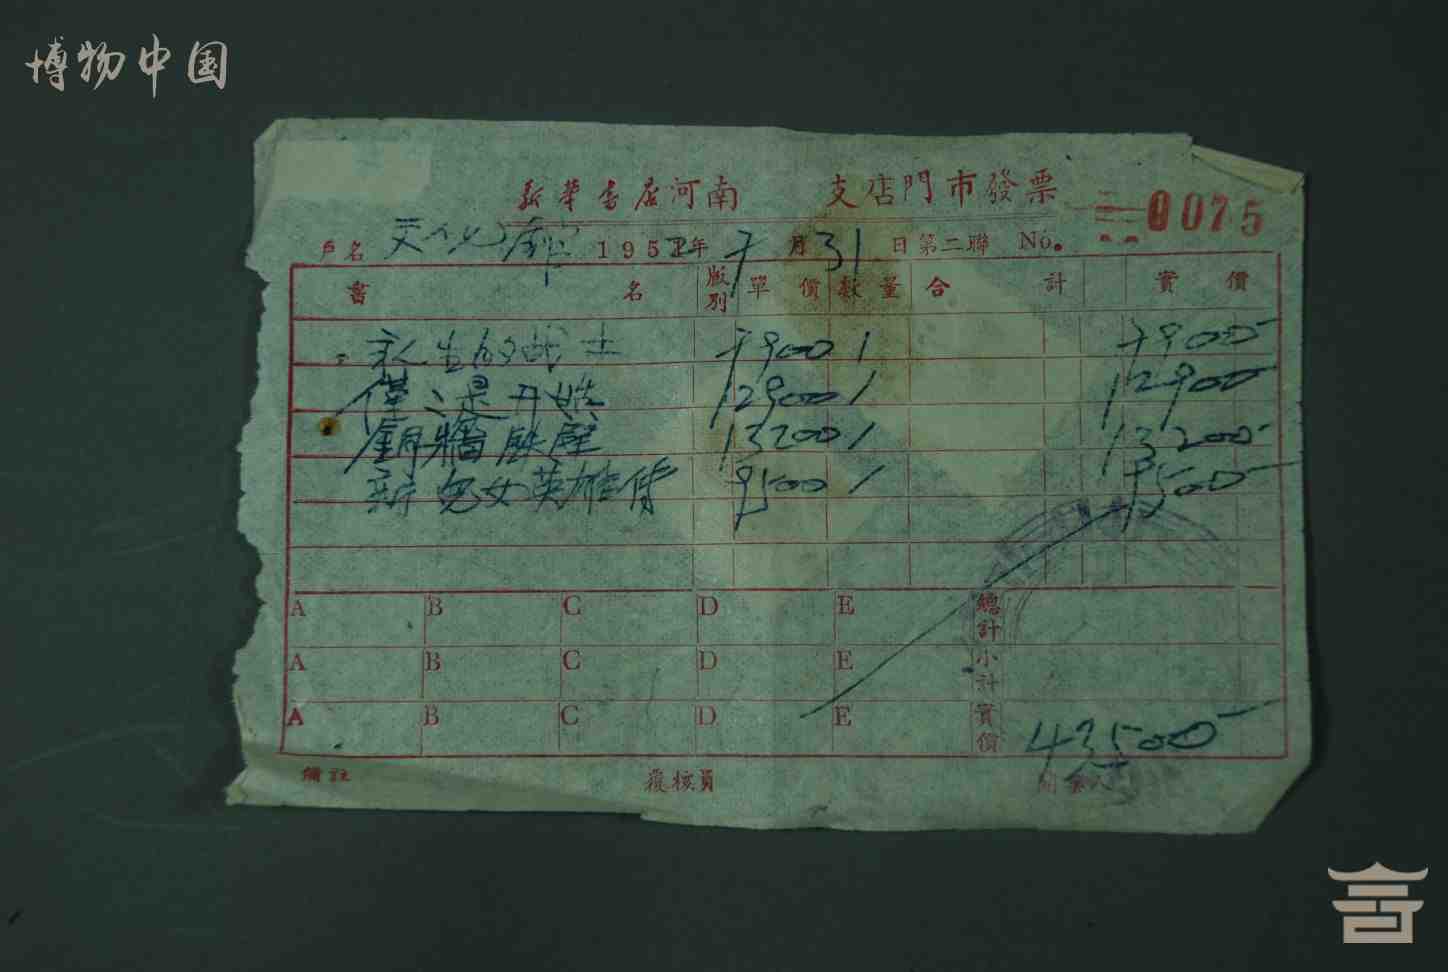 博物中国
新華書店河南 支店門市發票
0075
戶名 文化館 1952年 7月31日第二聯 No.
書名 版別 單價 數量 合計 實價
永生的战士 7900 1 7900
12900 1 12900
銅牆鉄壁 13200 1 13200
新兒女英雄傳 9500 1 9500
A B C D E 總計
A B C D E 小計
A B C D E 實價 43500
備註 覆核員 開票人